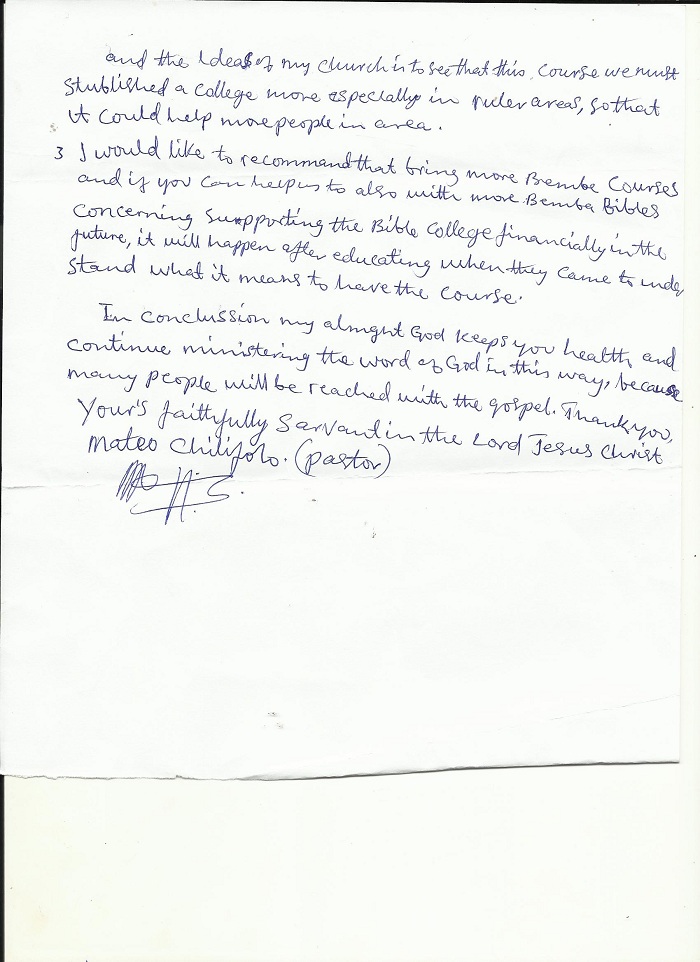 and the Ideas of my church is to see that this course we must
stublished a college more especially in ruler areas, so that
it could help more people in area.
3 I would like to recommand that bring more Bemba Courses
and if you can help us to also with more Bemba Bibles
Concerning supporting the Bible College financially in the
future, it will happen after educating when they came to under
stand what it means to have the course.
In conclussion my almight God keeps you health and
continue ministering the word of God in this way, because
many people will be reached with the gospel. Thank you,
Your's faithfully Sarvant in the Lord Jesus Christ
Mateo Chilifolo. (pastor)